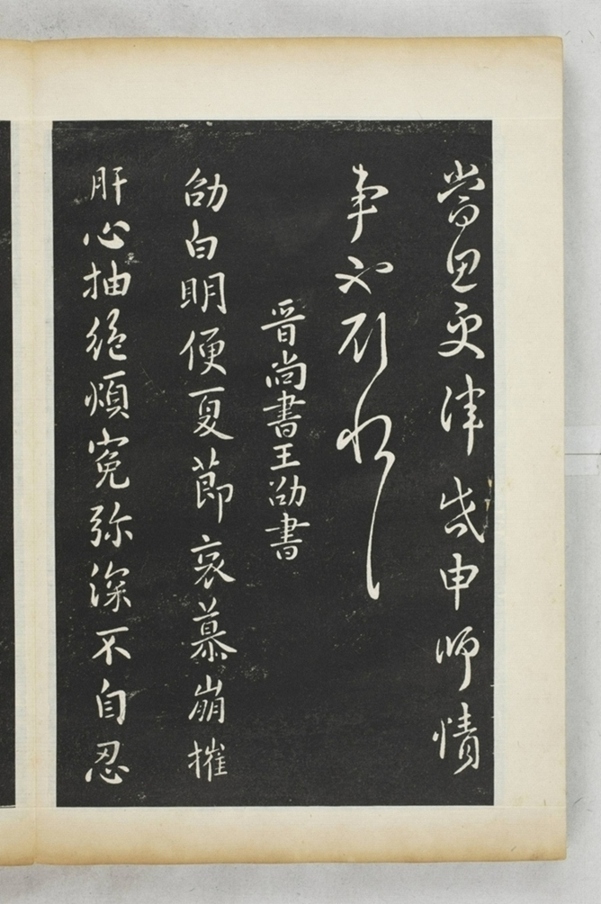 當思更津申師情
事
晉尚書王劭書
劭白明便夏節哀慕崩摧
肝心抽絕煩冤弥深不自忍